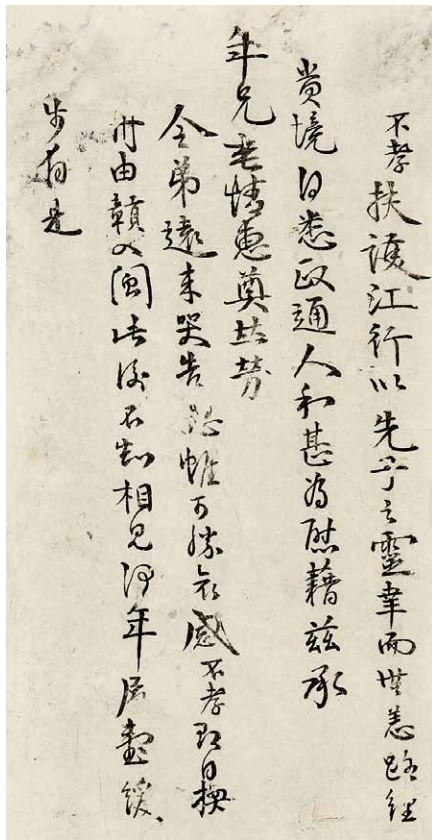 不孝扶護江行以先子之靈幸而無恙路經
貴境日悉政通人和甚為慰藉茲承
年兄垂情惠奠並勞
令弟遠來哭告繐帷可勝哀感不孝即日換
舟由贛入閩此後不知相見何年
步